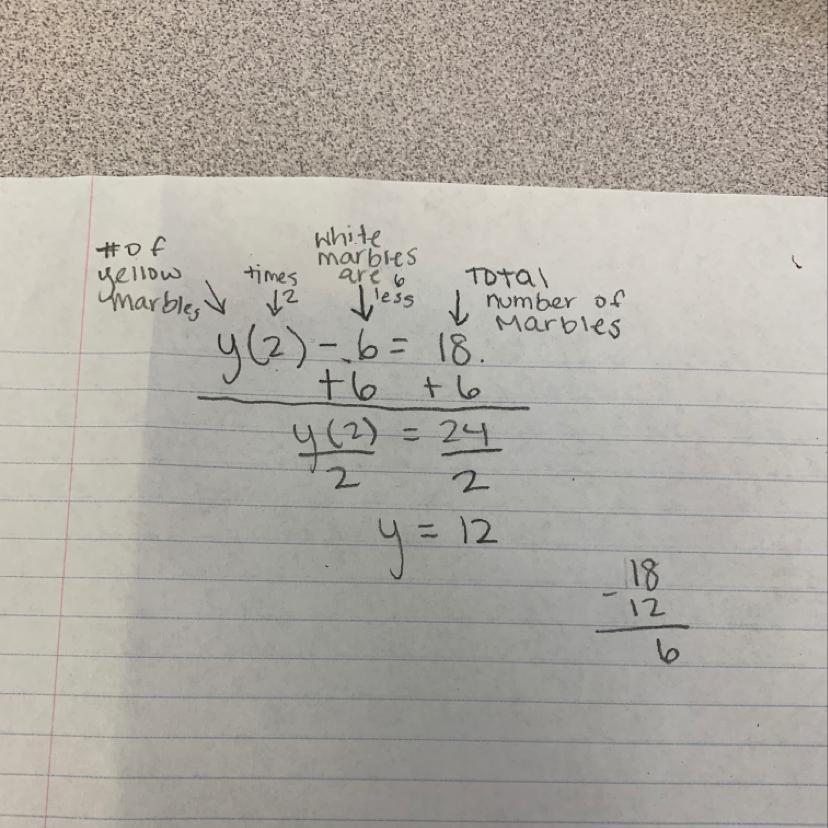 # of
yellow
marbles
times
2
white
marbles
are 6
less
Total
number of
Marbles
y(2) - 6 = 18.
+6 +6
y(2) = 24
2 2
y = 12
18
- 12
6